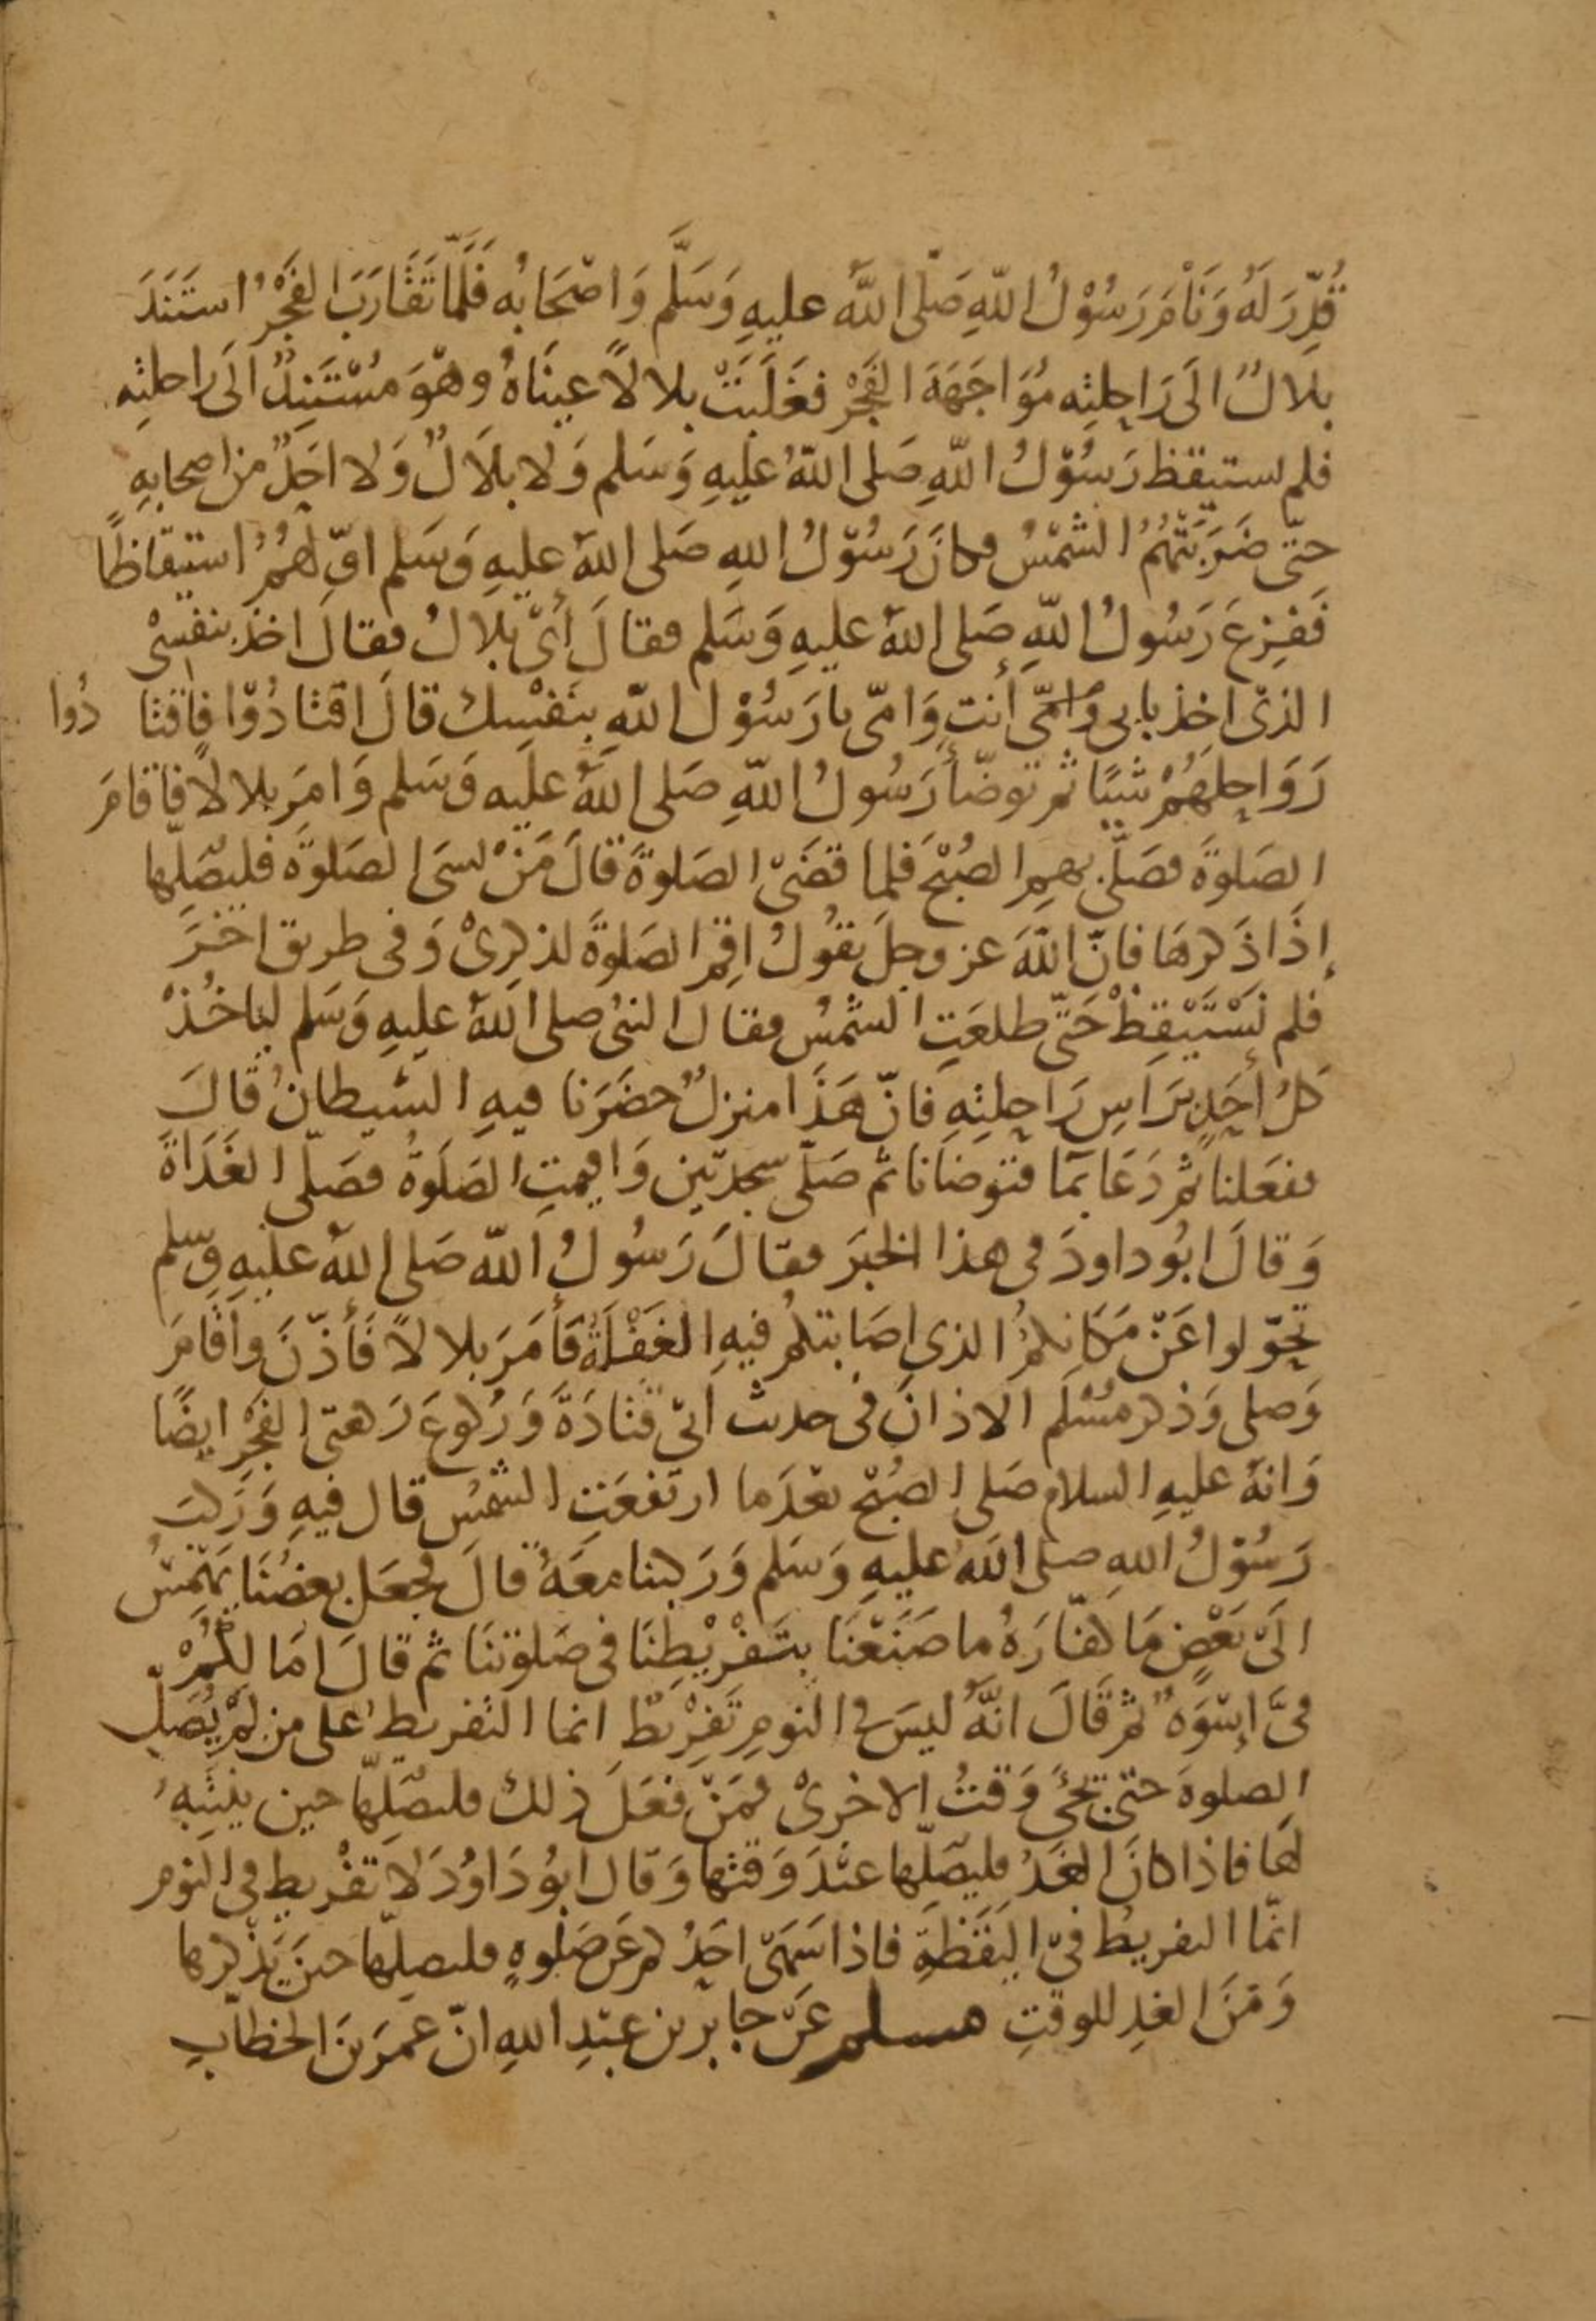 قُدِّرَ لَهُ وَنَامَ رَسُوْلُ اللّٰهِ صَلَّى اللَّهُ عليهِ وَسَلَّم وَاصْحَابُه فَلَمَّا تَقَارَبَ الفَجْرُ استَنَدَ
بلالٌ الَى رَاحِلتِه مُوَاجَهَةَ الفَجْرِ فغَلَبَتْ بلالًا عينَاهُ وهْوَ مسْتَنِدٌ الَى راحلتِه
فلم يستيقظ رَسُوْلُ اللّٰهِ صَلى اللّٰهُ عليهِ وَسَلم وَلا بلَالٌ وَلا احَدٌ من اصحابهِ
حتّى ضَرَبَتْهُمُ الشمْسُ وكانَ رَسُوْلُ اللهِ صَلى اللهُ عليهِ وَسَلم اوّلهُمُ استيقاظًا
فَفزِعَ رَسُولُ اللّٰهِ صَلى اللهُ عليهِ وَسَلم فقالَ أىْ بلالُ فقالَ اخذ بنفسِىْ
الذىْ اخذ بابى وَامّى أنت وَامّى يا رَسُوْل اللّٰهِ بنَفْسِك قالَ اقتادُوْا فاقتادُوا
رَوَاحِلهُمْ شيًا ثم توضّأ رَسُولُ اللّٰهِ صَلى اللّٰهُ عليهِ وَسَلم وَامَر بلالًا فاقامَ
الصَلوةَ فصَلّى بهِم الصُبْحَ فلما قضَىْ الصَلوةَ قالَ مَنْ نسىَ الصَلوةَ فليصَلّها
إذَا ذَكرهَا فانّ اللّٰهَ عز وجلَ يقُولُ اقِمِ الصَلوةَ لذِكرِىْ وَفى طريق اخَرَ
فلم نَسْتَيْقِظْ حَتّى طلعَتِ الشمسُ فقال النبىُ صلى اللهُ عليهِ وَسَلم لياخُذْ
كلُ أحَدٍ بَرَاسِ رَاحِلتِهِ فانّ هَذَا منزلٌ حضَرَنا فيهِ الشيطانُ قالَ
ففعَلنا ثم دَعَا بمَا فتوضانا ثم صَلّى سجدتين وَاقيمتِ الصَلَوةُ فصَلّى الغَدَاةَ
وَقالَ ابُو داودَ فى هذا الخبَر فقالَ رَسُولُ اللّٰه صَلى اللّٰهُ عليهِ وسلم
تحوّلوا عَنْ مَكَانِكمُ الذى اصَابتكمُ فيهِ الغَفْلَةُ فَأمَرَ بلالًا فَأذّنَ وأقامَ
وَصلى وَذكر مسْلم الاذانَ فى حديث ابىْ قتادَةَ وَرُكوعَ رَكعتى الفجْرِ ايضًا
وَانهُ عليهِ السلام صَلى الصبْح بعْدَما ارتفعَتِ الشمسُ قال فيهِ وَرَكبَ
رَسُوْلُ اللهِ صلى اللّٰهُ عليهِ وَسَلم وَرَكبنا معَهُ قالَ فجعَل بعضُنَا يَهْمِسُ
الَىْ بَعْضٍ مَا كفّارَةُ ما صَنَعْنَا بتَفْرِيْطِنَا فى صَلوتنَا ثم قالَ امَا لكُمْ
فىَّ إسْوَةٌ ثم قَالَ انّهُ ليسَ فى النومِ تَفرِيْطٌ انما التفريط على من لمْ يُصَلّ
الصلوةَ حتى تجىَٔ وَقتُ الاخرىْ فمَنْ فعَلَ ذلك فليصَلّهَا حين ينتَبِهُ
لهَا فاذا كانَ الغدُ فليصَلّها عندَ وَقتها وَقال ابُو دَاوُدَ لا تفْريط فى النوم
انّما التفريطُ فىْ اليَقَظَةِ فاذا سَهَىْ احَدُكم عَن صَلوةٍ فليصلّها حينَ يَذكرها
وَمنَ الغدِ للوقتِ مسلم عَنْ جابر بن عبْدِ اللهِ انّ عمَرَ بنَ الخطابِ